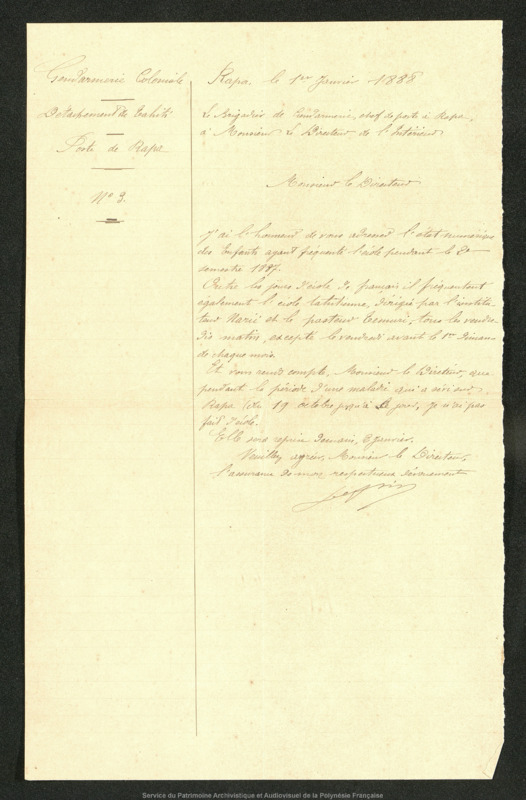 Gendarmerie Coloniale
Détachement de Tahiti
Poste de Rapa
N° 9.
Rapa le 1er Janvier 1888
Le Brigadier de Gendarmerie, chef de poste à Rapa,
à Monsieur Le Directeur de l'Intérieur
Monsieur le Directeur
J'ai l'honneur de vous adresser l'état numérique
des Enfants ayant fréquenté l'école pendant le 2e
semestre 1887.
Outre les jours d'école de français il fréquentent
également l'école tahitienne, dirigée par l'institu-
teur Narii et le pasteur, tous les vendre-
dis matins, excepté le vendredi avant le 1er Dimanche
de chaque mois.
Et vous rends compte, Monsieur le Directeur, que
pendant la période d'une maladie qui a sévi sur
Rapa du 19 octobre jusqu'à ce jour, je n'ai pas
fait d'école.
Elle sera reprise demain, 2 janvier.
Veuillez agréer, Monsieur le Directeur,
l'assurance de mon respectueux dévouement
Service du Patrimoine Archivistique et Audiovisuel de la Polynésie Française